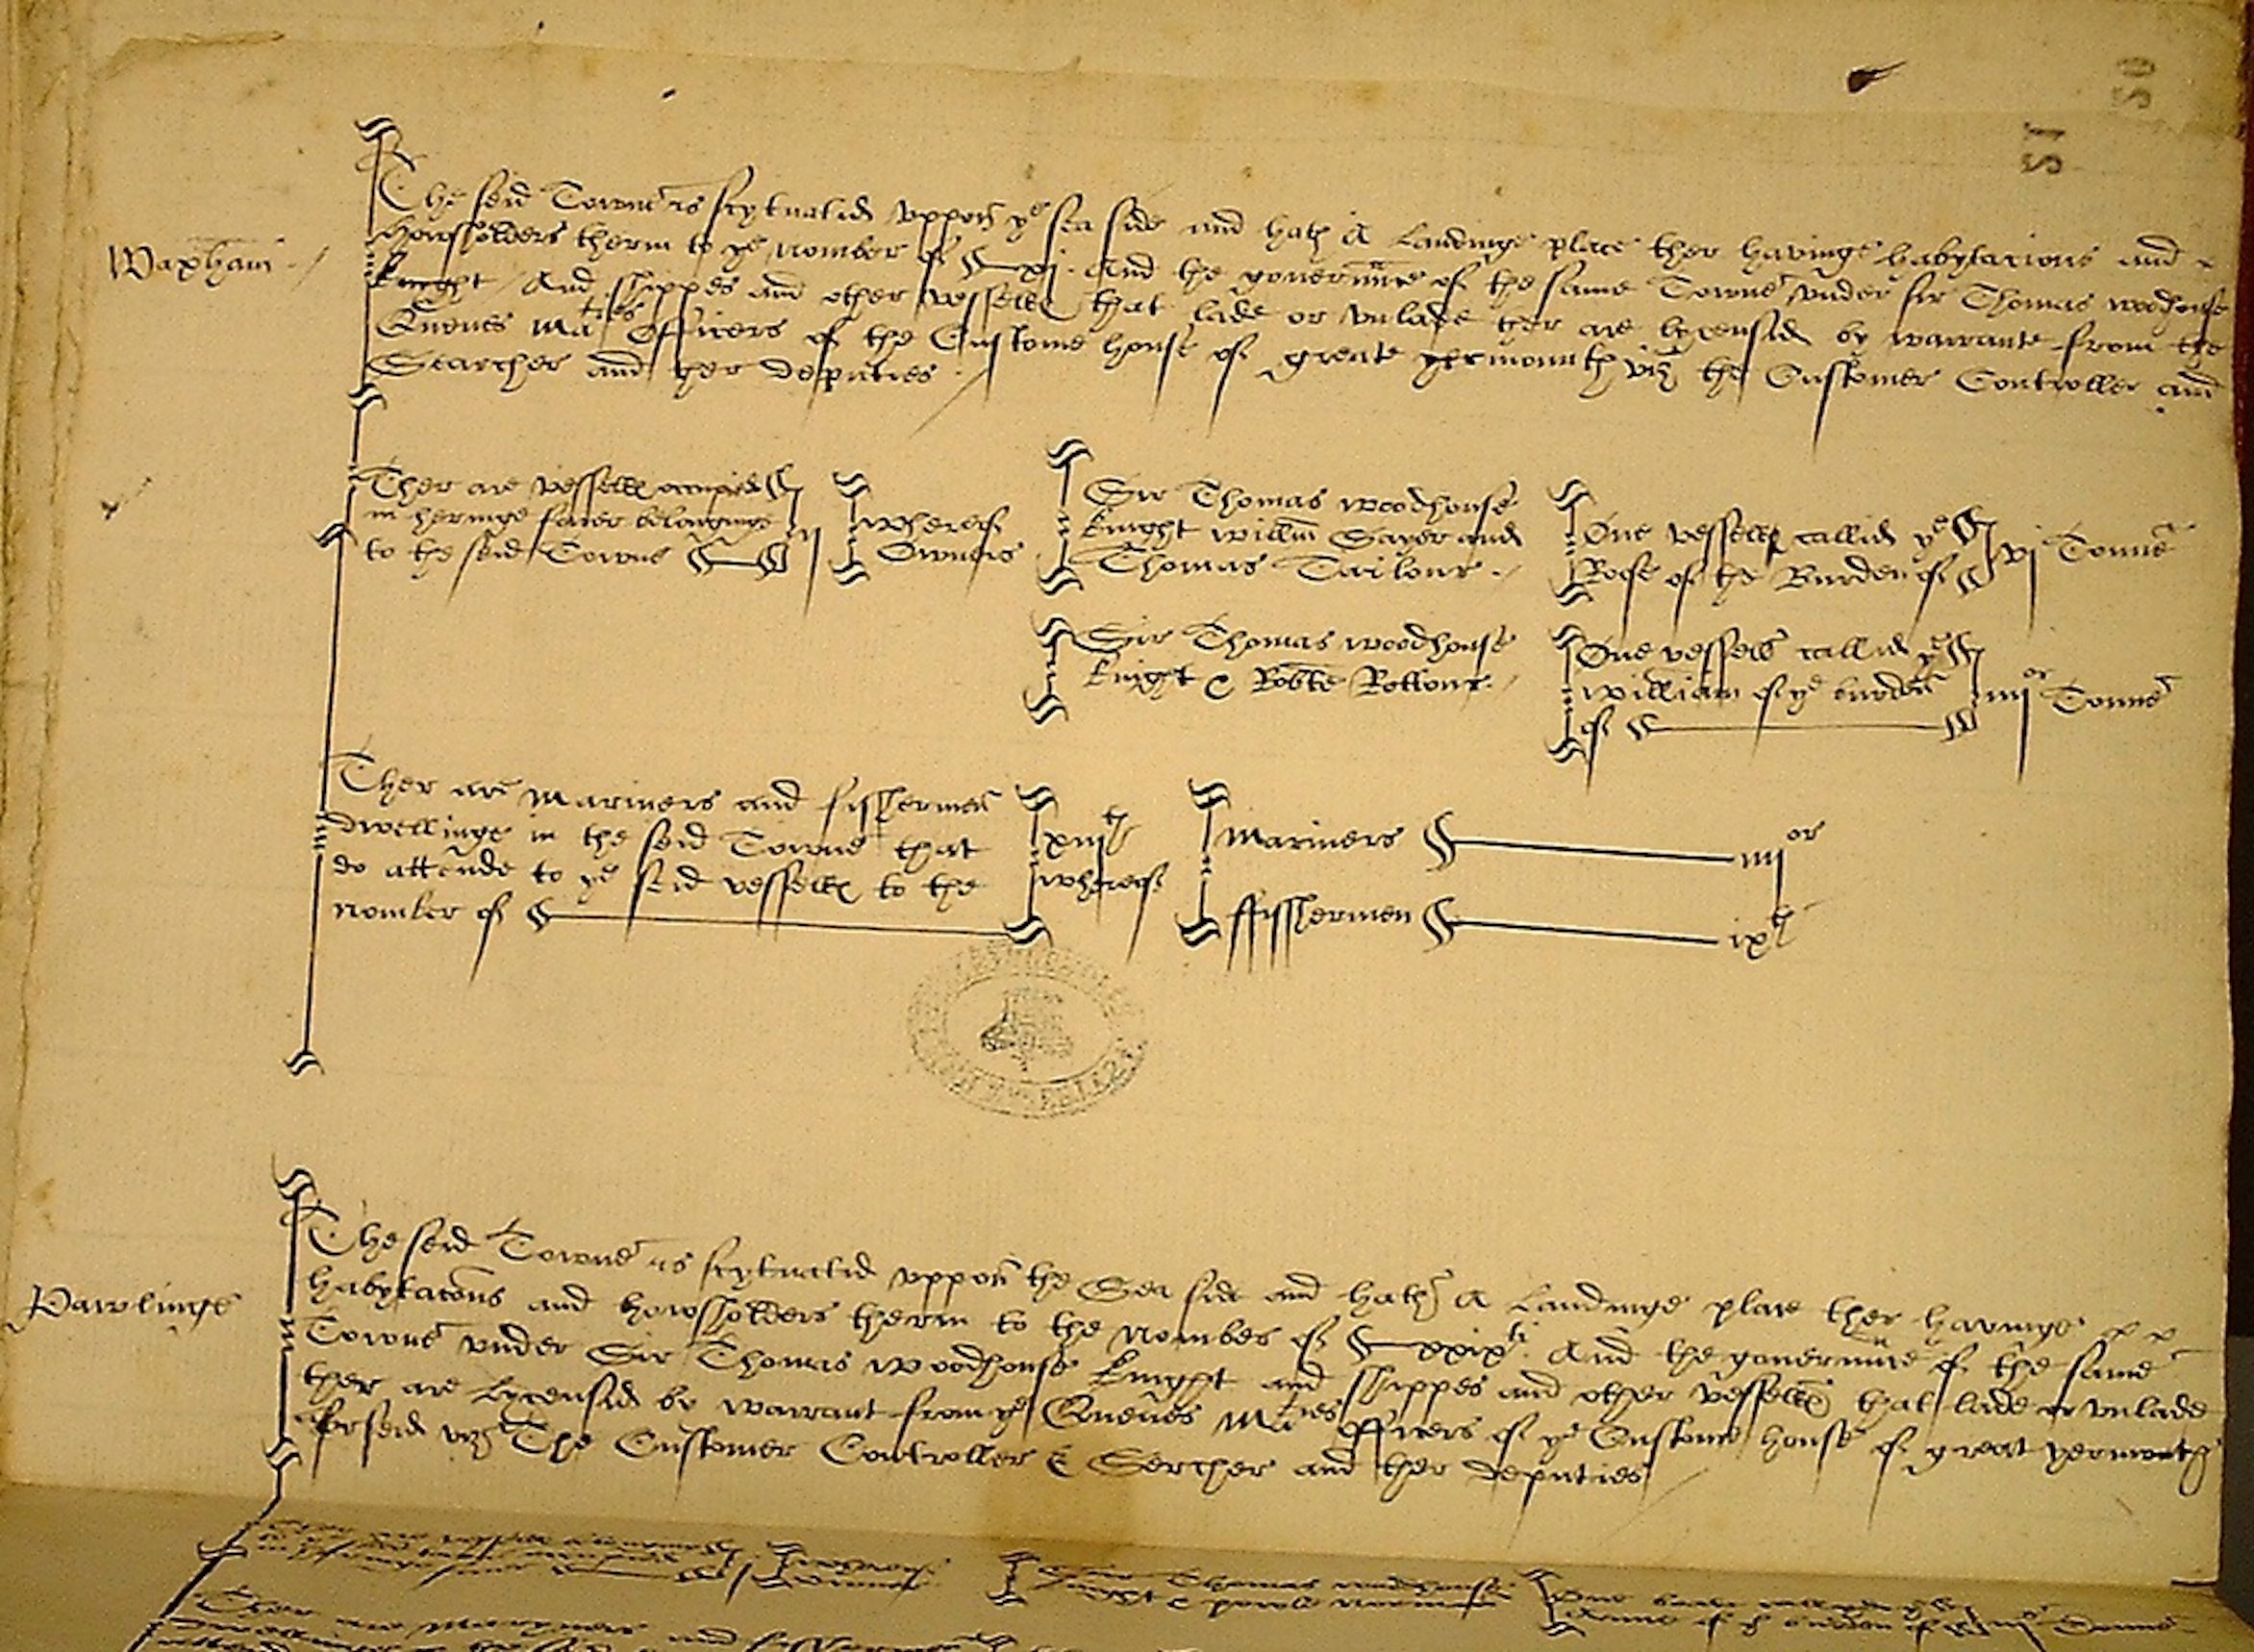 50
51
Waxham
The seid Towne is scytuatid uppon ye sea side and hath A Landinge place ther havinge habytacions and
howssholders therin to ye nomber of xj. And the governance of the same Towne under sir Thomas woodhouse
knyght And shippes and other vessells that lade or unlade ther are lycensid by warrante from the
Quenes Maties Officers of the Custome house of greate yermouth viz the Customer Controller and
Searcher and ther deputies
Ther are vessells occupied
in heringe faier belonginge
to the seid Towne
ij
Wherof
Owners
Sir Thomas woodhouse
knight Willm Sayer and
Thomas Tailour
One vessell callid ye
Rose of the Burden of
vj Tonne
Sir Thomas woodhouse
knight & Robte Rottour
One vessell callid ye
William of ye burden
of
iiijor Tonne
Ther are Mariners and fissherman
dwellinge in the seid Towne that
do attende to ye seid vessells to the
nomber of
xiijth
wherof
Mariners iiijor
ffisshermen ixth
Pawlinge
The seid Towne is scytuatid uppon the Sea side and hath A Landinge place ther havinge
habytacons and howssholders therin to the nomber of xxixti And the governance of the same
Towne under Sir Thomas Woodhouse knight and shippes and other vessells that lade or unlade
ther are Lycensid by warrant from ye Quenes Maties officers of ye Custome house of great yermouth
forseid viz The Customer Controller & Sercher and ther deputies
Ther are
Wherof
Owners
Sir Thomas woodhouse
knight &
One callid ye
of ye burden of iiijor Tonne
Ther are Maryners and fissherman
dwellinge in the